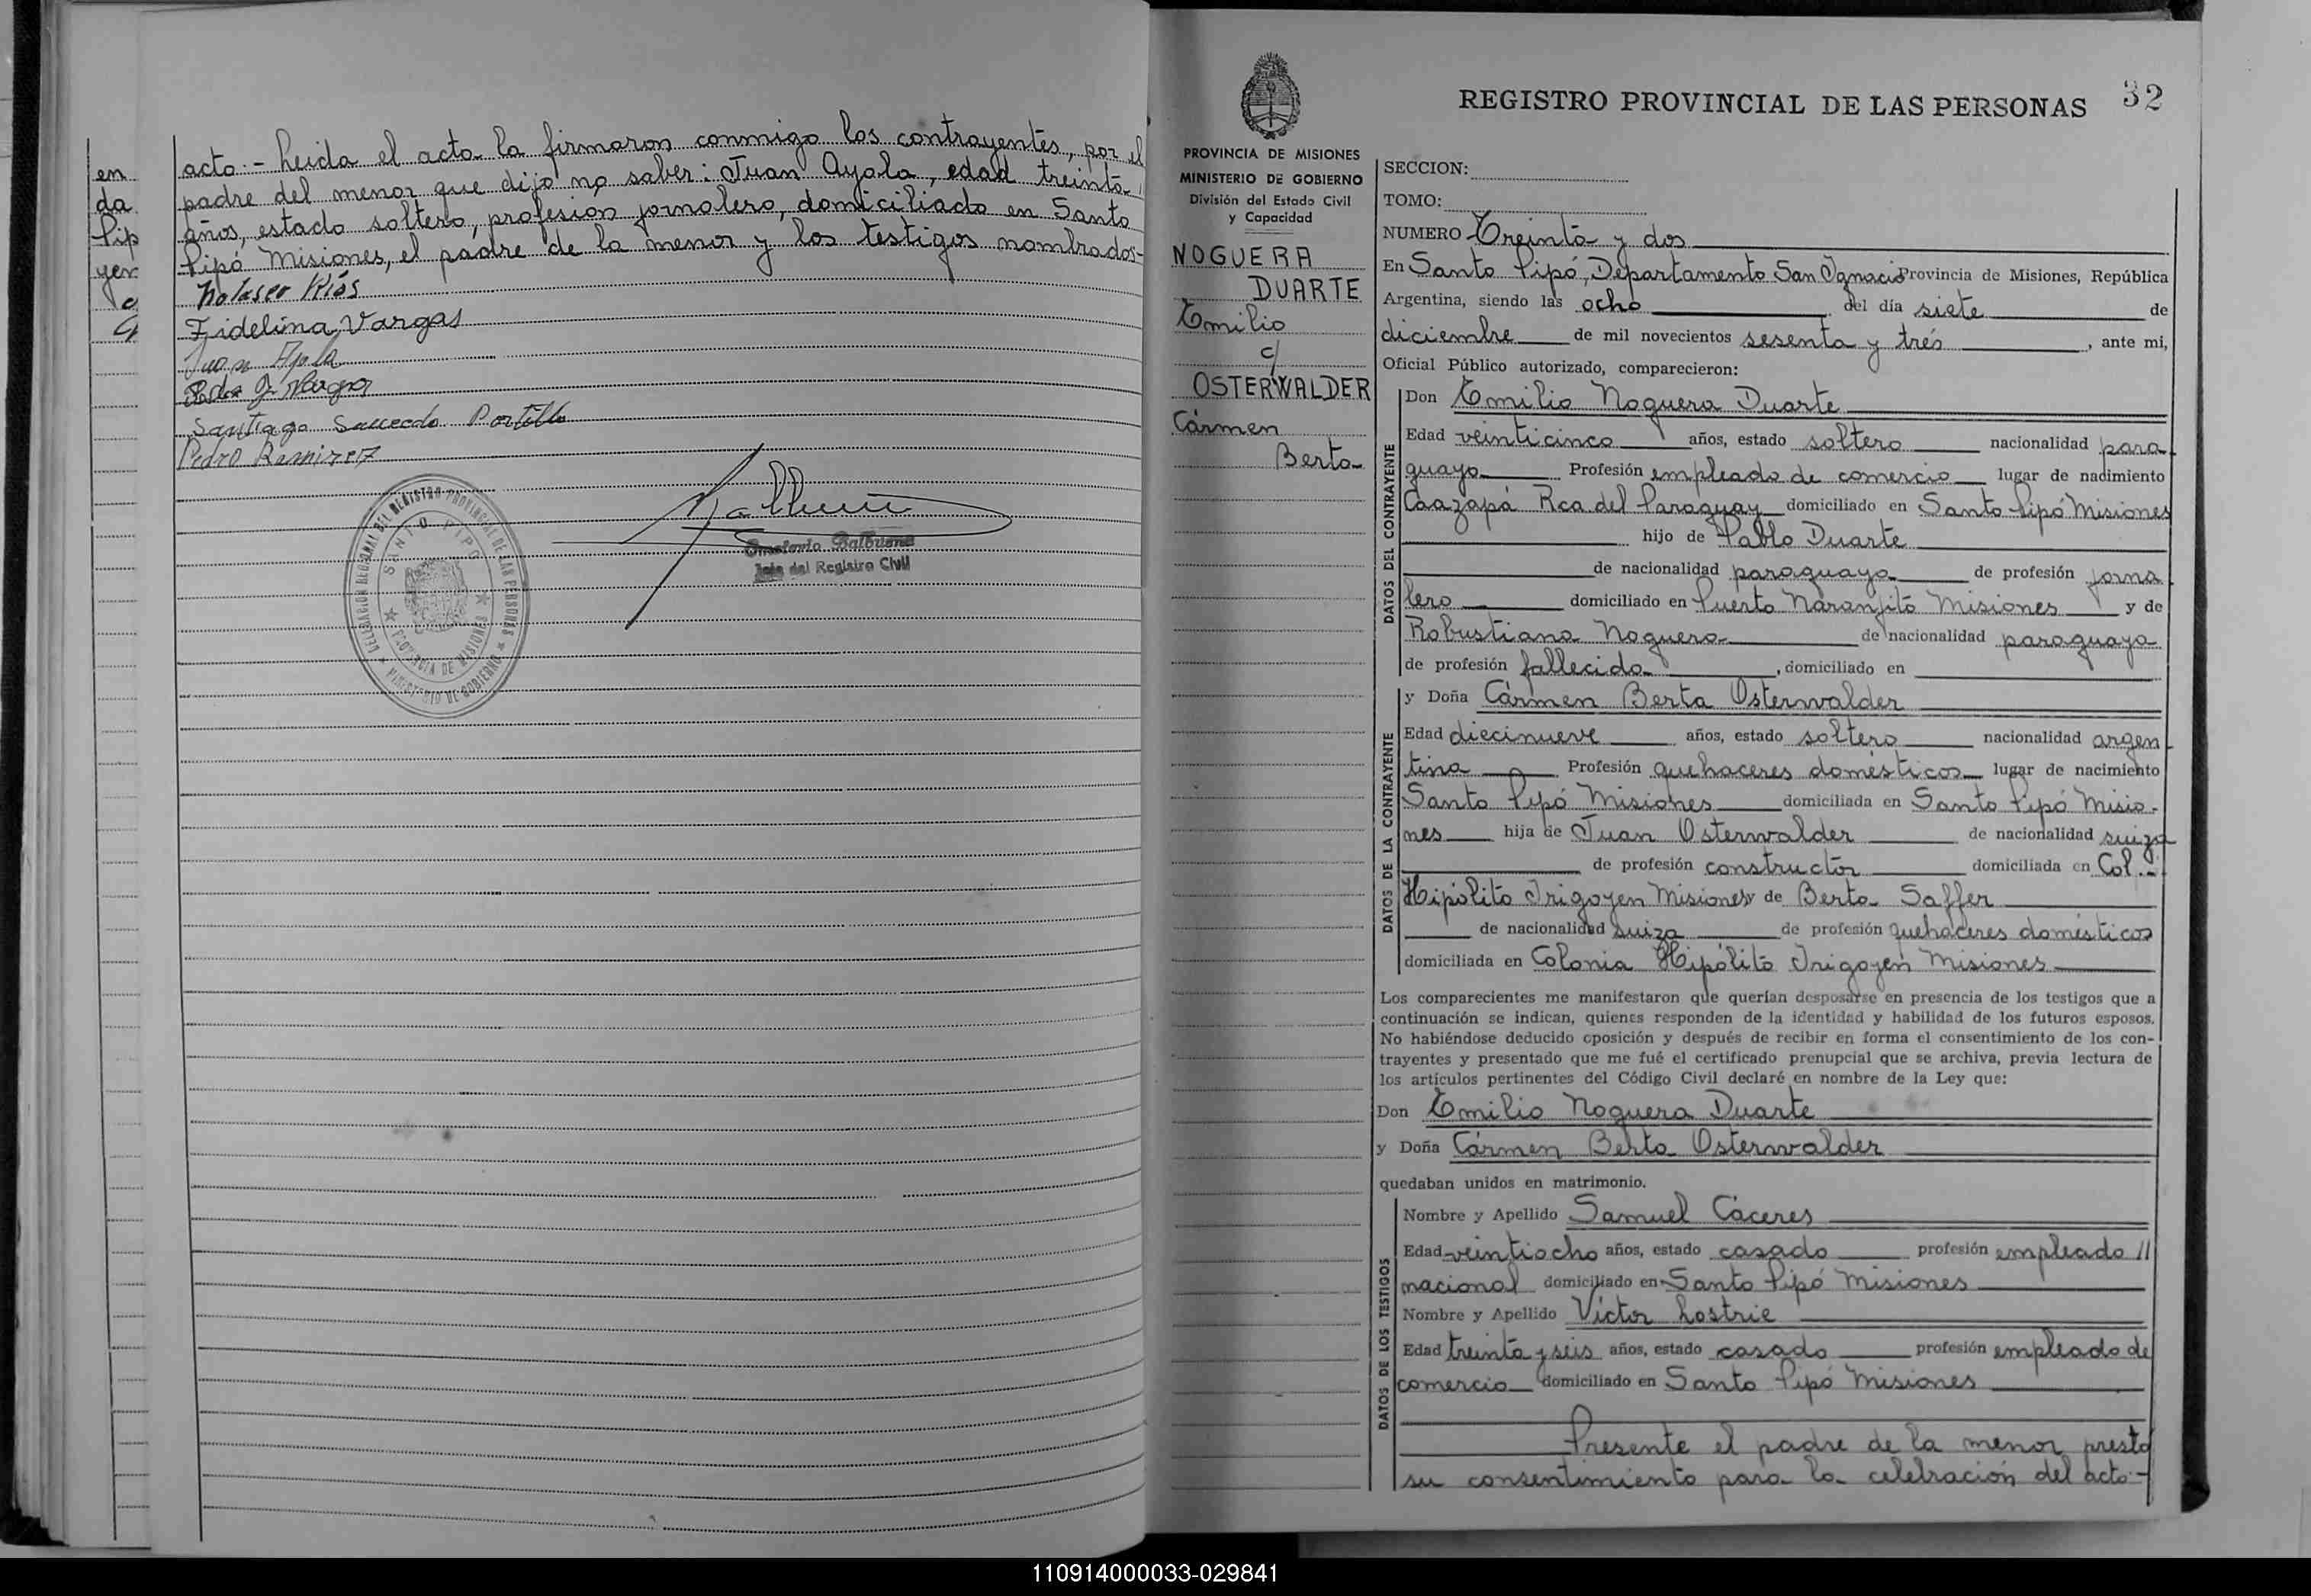 en
da
Pip
yen
acto.- Leida el acta la firmaron conmigo los contrayentes, por el
padre del menor que dijo no saber: Juan Ayala, edad treinta
años, estado soltero, profesión jornalero, domiciliado en Santo
Pipó Misiones, el padre de la menor y los testigos nombrados-
Nolasco Ríos
Fidelina Vargas
Juan Ayala
Vargas
Santiago Saucedo Portillo
Pedro Ramirez
DELEGACION REGIONAL DEL REGISTRO PROVINCIAL DE LAS PERSONAS
SANTO PIPO
PROVINCIA DE MISIONES
MINISTERIO DE GOBIERNO
Balbuena
Jefe del Registro Civil
32
REGISTRO PROVINCIAL DE LAS PERSONAS
PROVINCIA DE MISIONES
MINISTERIO DE GOBIERNO
División del Estado Civil
y Capacidad
NOGUERA
DUARTE
Emilio
c/
OSTERWALDER
Cármen
Berta
SECCION:
TOMO:
NUMERO Treinta y dos
En Santo Pipó, Departamento San Ignacio Provincia de Misiones, República
Argentina, siendo las ocho del día siete de
diciembre de mil novecientos sesenta y trés, ante mi,
Oficial Público autorizado, comparecieron:
DATOS DEL CONTRAYENTE
Don Emilio Noguera Duarte
Edad veinticinco años, estado soltero nacionalidad para-
guaya Profesión empleado de comercio lugar de nacimiento
Caazapá Rca del Paraguay domiciliado en Santo Pipó Misiones
hijo de Pablo Duarte
de nacionalidad paraguaya de profesión jorna-
lero domiciliado en Puerto Naranjito Misiones y de
Robustiana Noguera de nacionalidad paraguaya
de profesión fallecida, domiciliado en
DATOS DE LA CONTRAYENTE
y Doña Cármen Berta Osterwalder
Edad diecinueve años, estado soltera nacionalidad argen-
tina Profesión quehaceres domésticos lugar de nacimiento
Santo Pipó Misiones domiciliada en Santo Pipó Misio-
nes hija de Juan Osterwalder de nacionalidad suiza
de profesión constructor domiciliada en Col.-
Hipólito Irigoyen Misiones y de Berta Saffer
de nacionalidad suiza de profesión quehaceres domésticos
domiciliada en Colonia Hipólito Irigoyen Misiones
Los comparecientes me manifestaron que querían desposarse en presencia de los testigos que a
continuación se indican, quienes responden de la identidad y habilidad de los futuros esposos.
No habiéndose deducido oposición y después de recibir en forma el consentimiento de los con-
trayentes y presentado que me fué el certificado prenupcial que se archiva, previa lectura de
los artículos pertinentes del Código Civil declaré en nombre de la Ley que:
Don Emilio Noguera Duarte
y Doña Cármen Berta Osterwalder
quedaban unidos en matrimonio.
DATOS DE LOS TESTIGOS
Nombre y Apellido Samuel Cáceres
Edad veintiocho años, estado casado profesión empleado //
nacional domiciliado en Santo Pipó Misiones
Nombre y Apellido Víctor Lostrie
Edad treinta y seis años, estado casado profesión empleado de
comercio domiciliado en Santo Pipó Misiones
Presente el padre de la menor presta
su consentimiento para la celebración del acto.-
110914000033-029841